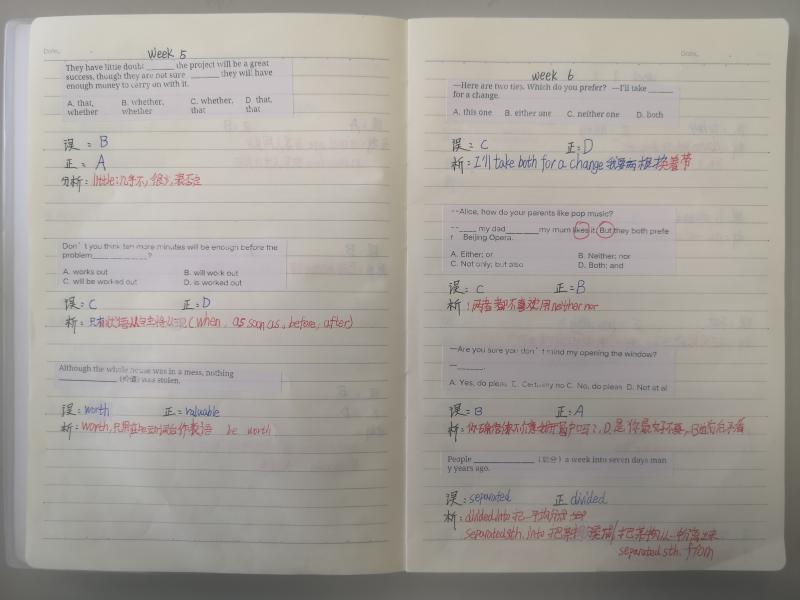 Date.
Week 5
They have little doubt ______ the project will be a great
success, though they are not sure ______ they will have
enough money to carry on with it.
A. that, whether
B. whether, whether
C. whether, that
D. that, that
误 = B
正 = A
分析: little: 几乎不, 很少, 表否定
Don't you think ten more minutes will be enough before the
problem____________?
A. works out
B. will work out
C. will be worked out
D. is worked out
误: C 正: D
析: (when, as soon as, before, after)
Although the whole house was in a mess, nothing
____________ (价值) was stolen.
误: worth 正: valuable
析: worth, 只用在be动词后作表语 be worth
Date.
week 6
—Here are two ties. Which do you prefer? —I'll take ______
for a change.
A. this one B. either one C. neither one D. both
误: C 正: D
析: I'll take both for a change 换着带
--Alice, how do your parents like pop music?
--____ my dad________my mum likes it. But they both prefe
r Beijing Opera.
A. Either; or
B. Neither; nor
C. Not only; but also
D. Both; and
误: C 正: B
析: 两者都不喜欢用neither nor
—Are you sure you don't mind my opening the window?
—______.
A. Yes, do pleas C. No, do pleas D. Not at al
误: B 正: A
析: 你确定你不介意我开窗户吗?, D是
People ____________ (划分) a week into seven days man
y years ago.
误: separated 正 divided
析: divided into 把一
separated sth. into 把某物
separated sth. from